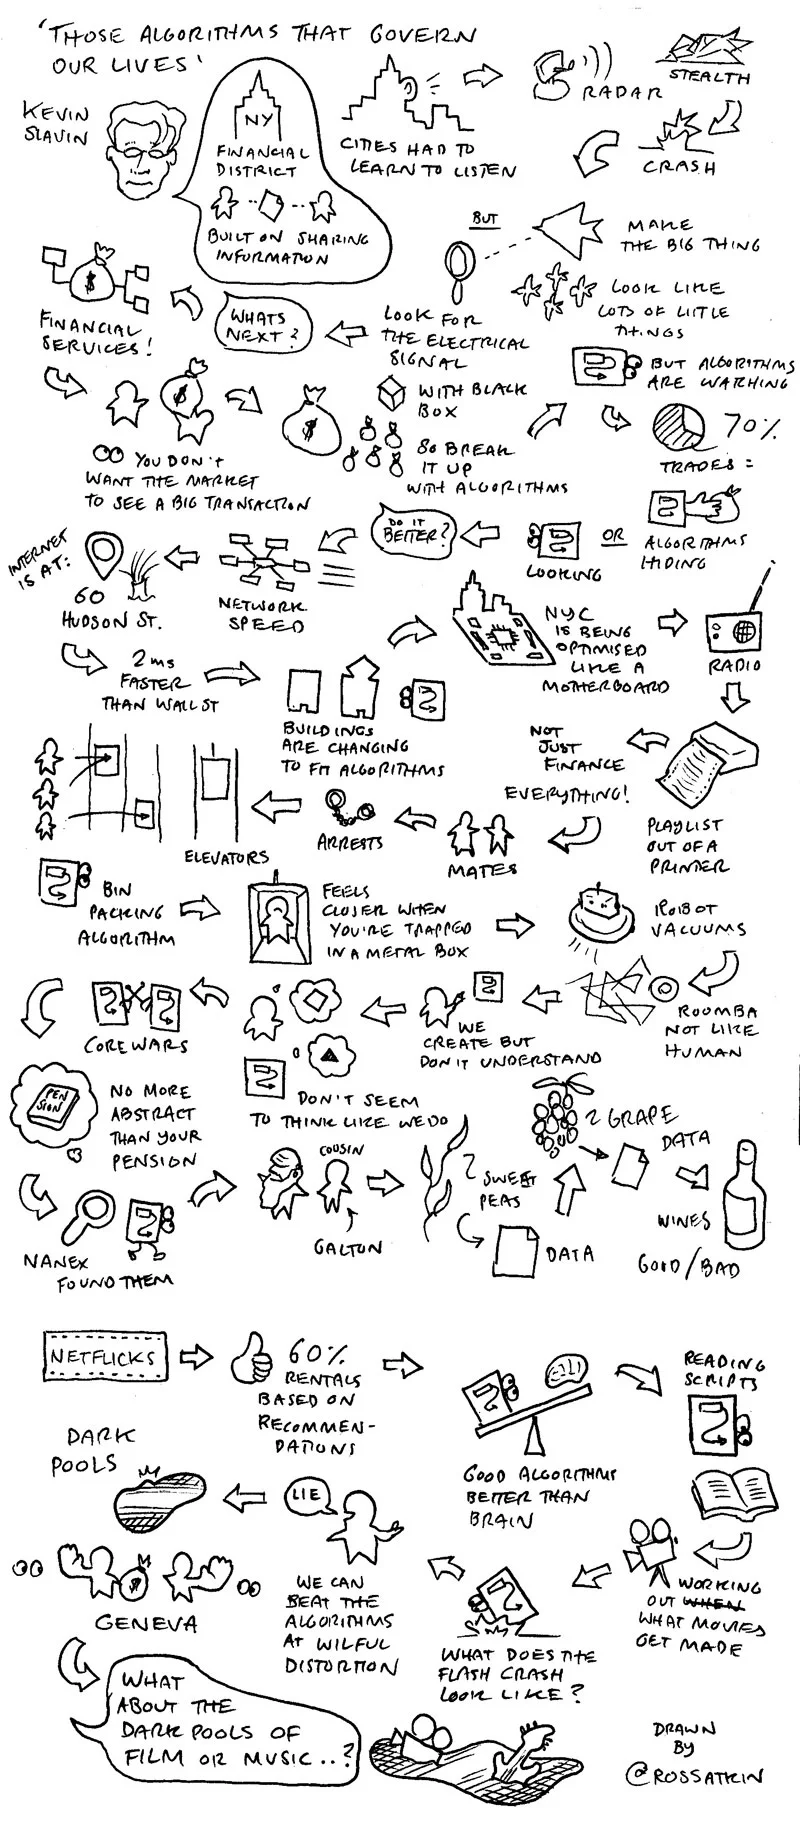 'THOSE ALGORITHMS THAT GOVERN
OUR LIVES'
KEVIN
SLAVIN
NY
FINANCIAL
DISTRICT
BUILT ON SHARING
INFORMATION
CITIES HAD TO
LEARN TO LISTEN
RADAR
STEALTH
CRASH
BUT
MAKE
THE BIG THING
LOOK LIKE
LOTS OF LITTLE
THINGS
LOOK FOR
THE ELECTRICAL
SIGNAL
WHATS
NEXT?
FINANCIAL
SERVICES!
$
YOU DON'T
WANT THE MARKET
TO SEE A BIG TRANSACTION
$
$
WITH BLACK
BOX
SO BREAK
IT UP
WITH ALGORITHMS
BUT ALGORITHMS
ARE WATCHING
70%
TRADES =
ALGORITHMS
HIDING
OR
LOOKING
DO IT
BETTER?
NETWORK
SPEED
INTERNET
IS AT:
60
HUDSON ST.
2ms
FASTER
THAN WALL ST
BUILDINGS
ARE CHANGING
TO FIT ALGORITHMS
NYC
IS BEING
OPTIMISED
LIKE A
MOTHERBOARD
RADIO
PLAYLIST
OUT OF A
PRINTER
NOT
JUST
FINANCE
EVERYTHING!
MATES
ARRESTS
ELEVATORS
BIN
PACKING
ALGORITHM
FEELS
CLOSER WHEN
YOU'RE TRAPPED
IN A METAL BOX
ROBOT
VACUUMS
ROOMBA
NOT LIKE
HUMAN
WE
CREATE BUT
DON'T UNDERSTAND
DON'T SEEM
TO THINK LIKE WE DO
COREWARS
PEN
SION
NO MORE
ABSTRACT
THAN YOUR
PENSION
NANEX
FOUND THEM
COUSIN
GALTON
SWEET
PEAS
DATA
GRAPE
DATA
WINES
GOOD/BAD
NETFLICKS
60%
RENTALS
BASED ON
RECOMMEN-
DATIONS
GOOD ALGORITHMS
BETTER THAN
BRAIN
READING
SCRIPTS
WORKING
OUT WHEN
WHAT MOVIES
GET MADE
WHAT DOES THE
FLASH CRASH
LOOK LIKE?
LIE
WE CAN
BEAT THE
ALGORITHMS
AT WILFUL
DISTORTION
DARK
POOLS
$
GENEVA
WHAT
ABOUT THE
DARK POOLS OF
FILM OR MUSIC..?
DRAWN
BY
@ROSSATKIN